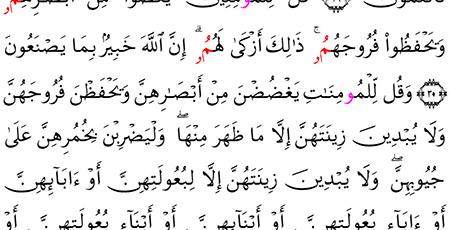 قُل لِّلْمُومِنِينَ يَغُضُّوا۟ مِنْ أَبْصَٰرِهِمُۥ
وَيَحْفَظُوا۟ فُرُوجَهُمُۥۚ ذَٰلِكَ أَزْكَىٰ لَهُمُۥۗ إِنَّ ٱللَّهَ خَبِيرُۢ بِمَا يَصْنَعُونَ
﴿٣٠﴾ وَقُل لِّلْمُومِنَٰتِ يَغْضُضْنَ مِنْ أَبْصَٰرِهِنَّ وَيَحْفَظْنَ فُرُوجَهُنَّ
وَلَا يُبْدِينَ زِينَتَهُنَّ إِلَّا مَا ظَهَرَ مِنْهَاۖ وَلْيَضْرِبْنَ بِخُمُرِهِنَّ عَلَىٰ
جُيُوبِهِنَّۖ وَلَا يُبْدِينَ زِينَتَهُنَّ إِلَّا لِبُعُولَتِهِنَّ أَوْ ءَابَآئِهِنَّ
أَوْ ءَابَآءِ بُعُولَتِهِنَّ أَوْ أَبْنَآئِهِنَّ أَوْ أَبْنَآءِ بُعُولَتِهِنَّ أَوْ